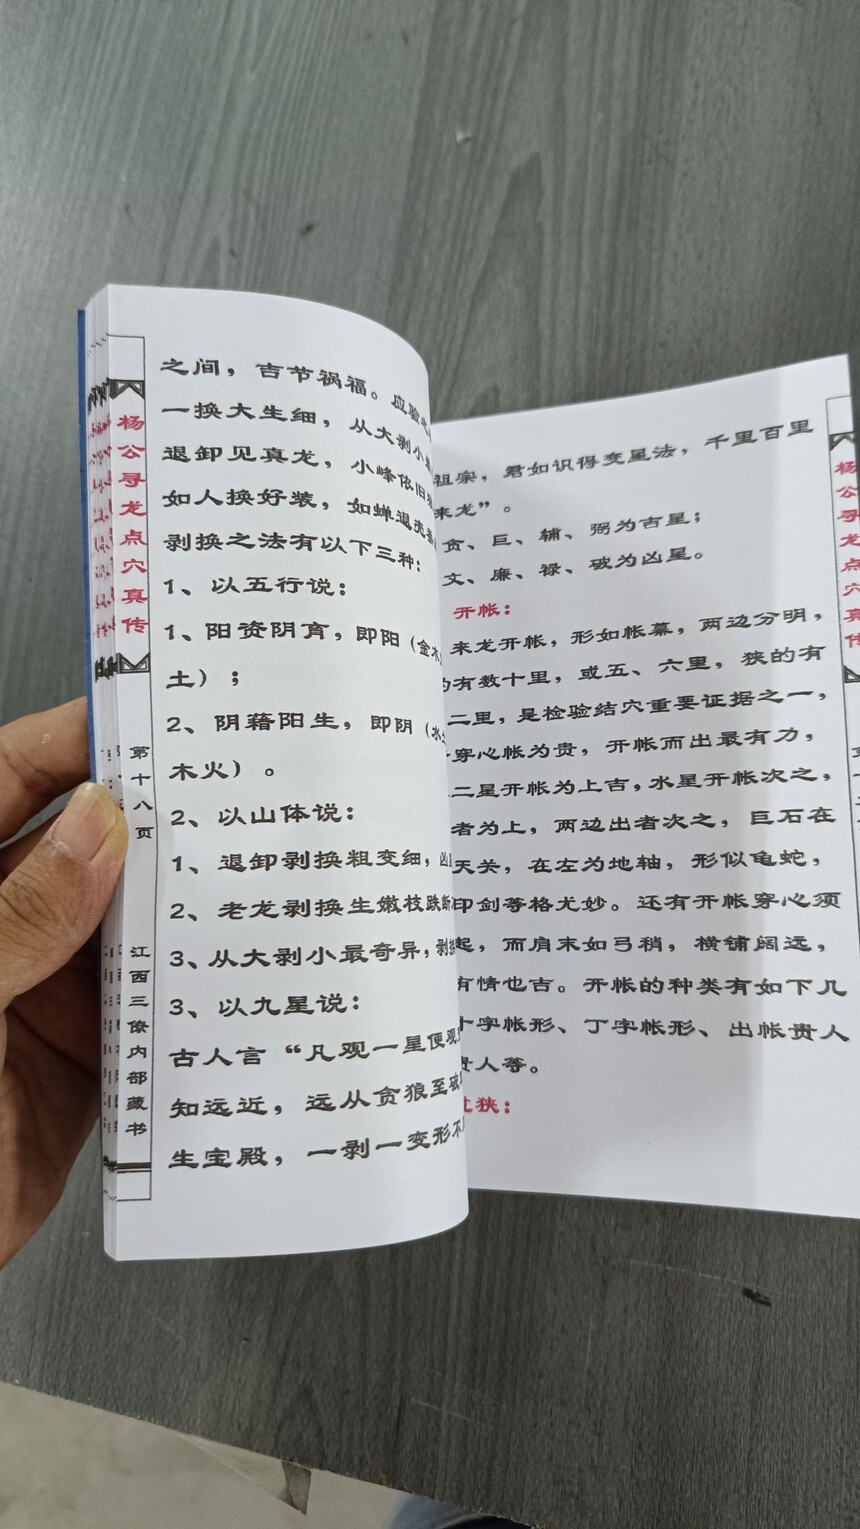 杨公寻龙点穴真传
第十八页
江西三僚内部藏书
之间，吉节祸福。应验
一换大生细，从大剥小
退卸见真龙，小峰依旧
如人换好装，如蝉退壳
剥换之法有以下三种：
1、以五行说：
1、阳资阴育，即阳（金木
土）；
2、阴籍阳生，即阴（水
木火）。
2、以山体说：
1、退卸剥换粗变细，凶
2、老龙剥换生嫩枝跌断
3、从大剥小最奇异，剥
3、以九星说：
古人言“凡观一星便观
知远近，远从贪狼至破
生宝殿，一剥一变形不
祖宗，君如识得变星法，千里百里
来龙”。
贪、巨、辅、弼为吉星；
文、廉、禄、破为凶星。
开帐：
来龙开帐，形如帐幕，两边分明，
的有数十里，或五、六里，狭的有
二里，是检验结穴重要证据之一，
穿心帐为贵，开帐而出最有力，
二星开帐为上吉，水星开帐次之，
者为上，两边出者次之，巨石在
天关，在左为地轴，形似龟蛇，
印剑等格尤妙。还有开帐穿心须
起，而肩末如弓稍，横铺阔远，
有情也吉。开帐的种类有如下几
十字帐形、丁字帐形、出帐贵人
贵人等。
狭：
杨公寻龙点穴真传